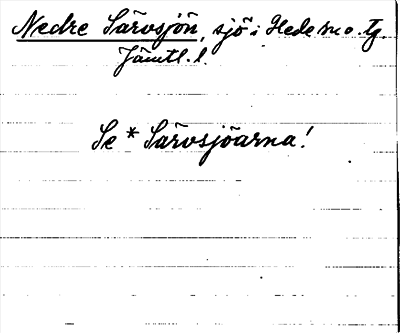 Nedre Särvsjön, sjö i Hede sn o. tg
Jämtl. l.
Se * Särvsjöarna!